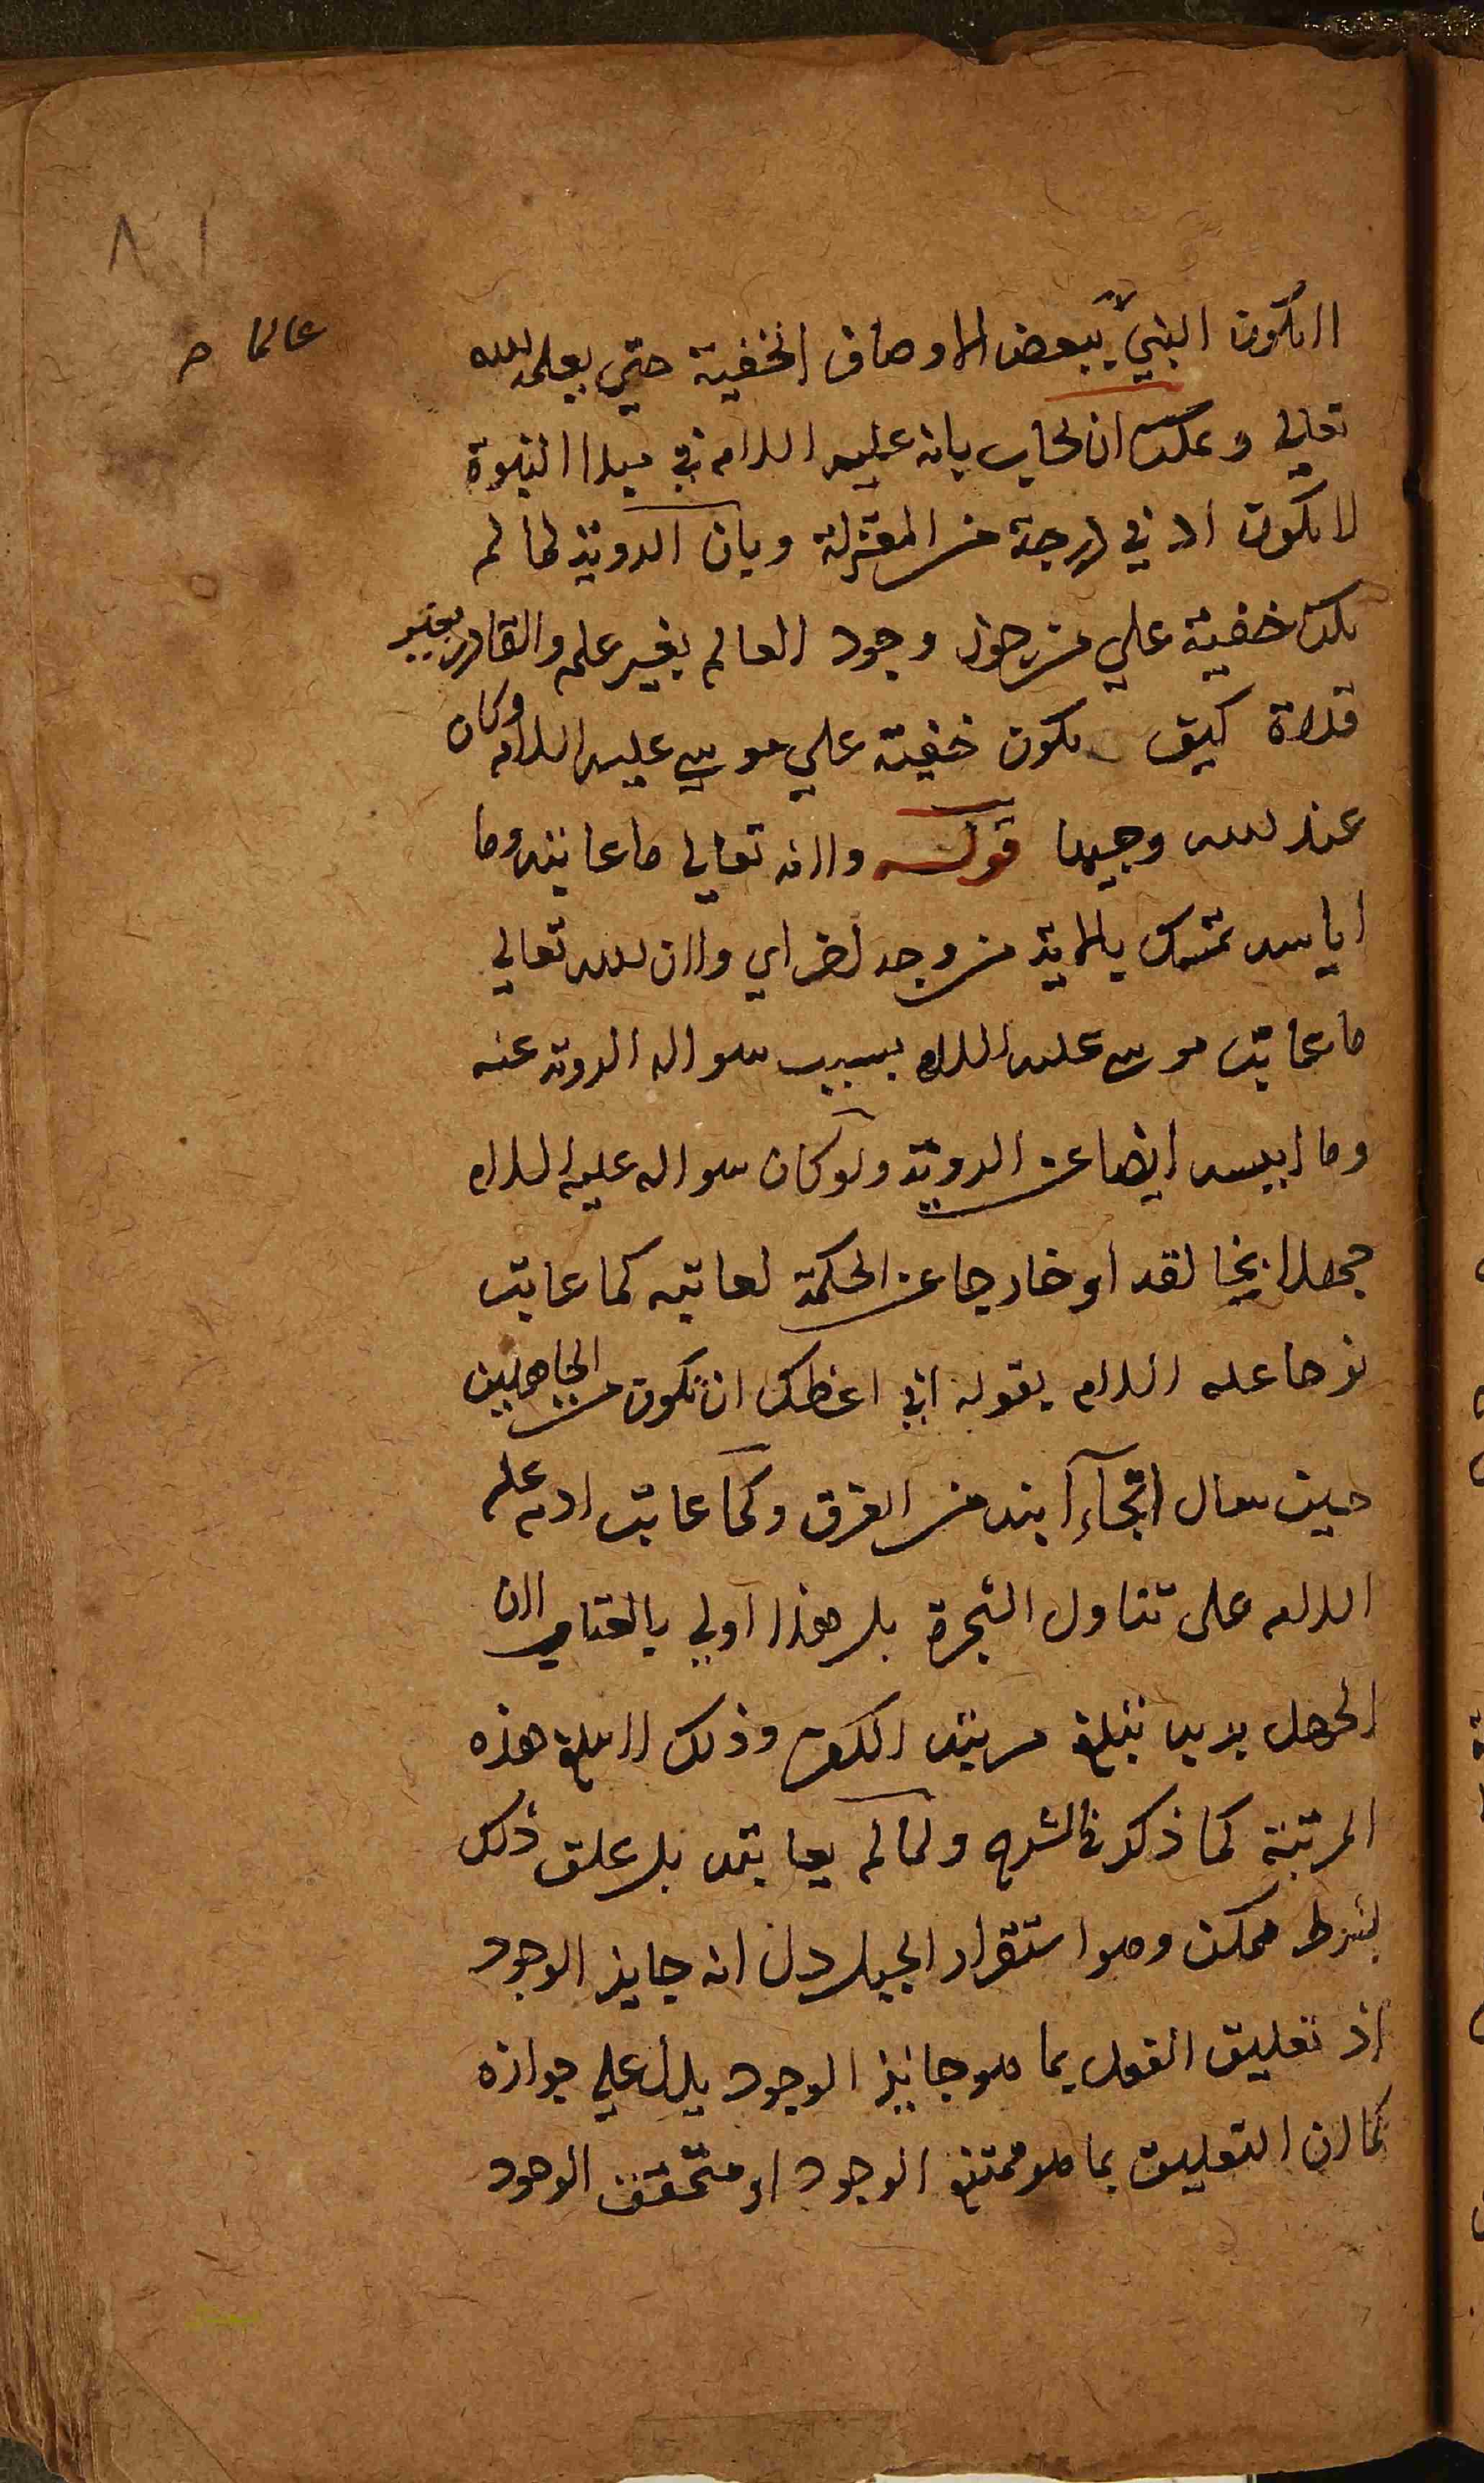 ٨١
عالما صح
لا يكون النبي ببعض الاوصاف الخفية حتى يعلمه الله
تعالى ويمكن ان يجاب بانه عليه السلام في مبدا النبوة
لا يكون ادني درجة من المعتزلة وبان الروية لما لم
يكن خفية علي من جوز وجود العالم بغير علم والقادر بغير
قدرة كيف يكون خفية علي موسي عليه السلام وكان
عند الله وجيها قوله ولانه تعالي ما عاتبه وما
اياسه تمسك بالاية من وجه اخر اي ولان الله تعالي
ما عاتب موسي عليه السلام بسبب سواله الروية عنه
وما ايسه ايضا عن الروية ولو كان سواله عليه السلام
جهلا بخالقه او خارجا عن الحكمة لعاتبه كما عاتب
نوحا عليه السلام بقوله اني اعظك ان تكون من الجاهلين
حين سال انجآء ابنه من الغرق وكما عاتب ادم عليه
السلام على تناول الشجرة بل هذا اولي بالعتاب لان
الجهل بربه يبلغ مرتبة الكفر وذلك لا يبلغ هذه
المرتبة كما ذكر في الشرح ولما لم يعاتبه بل علق ذلك
بشرط ممكن وهو استقرار الجبل دل انه جايز الوجود
اذ تعليق الفعل بما هو جايز الوجود يدل علي جوازه
كما ان التعليق بما هو ممتنع الوجود او متحقق الوجود